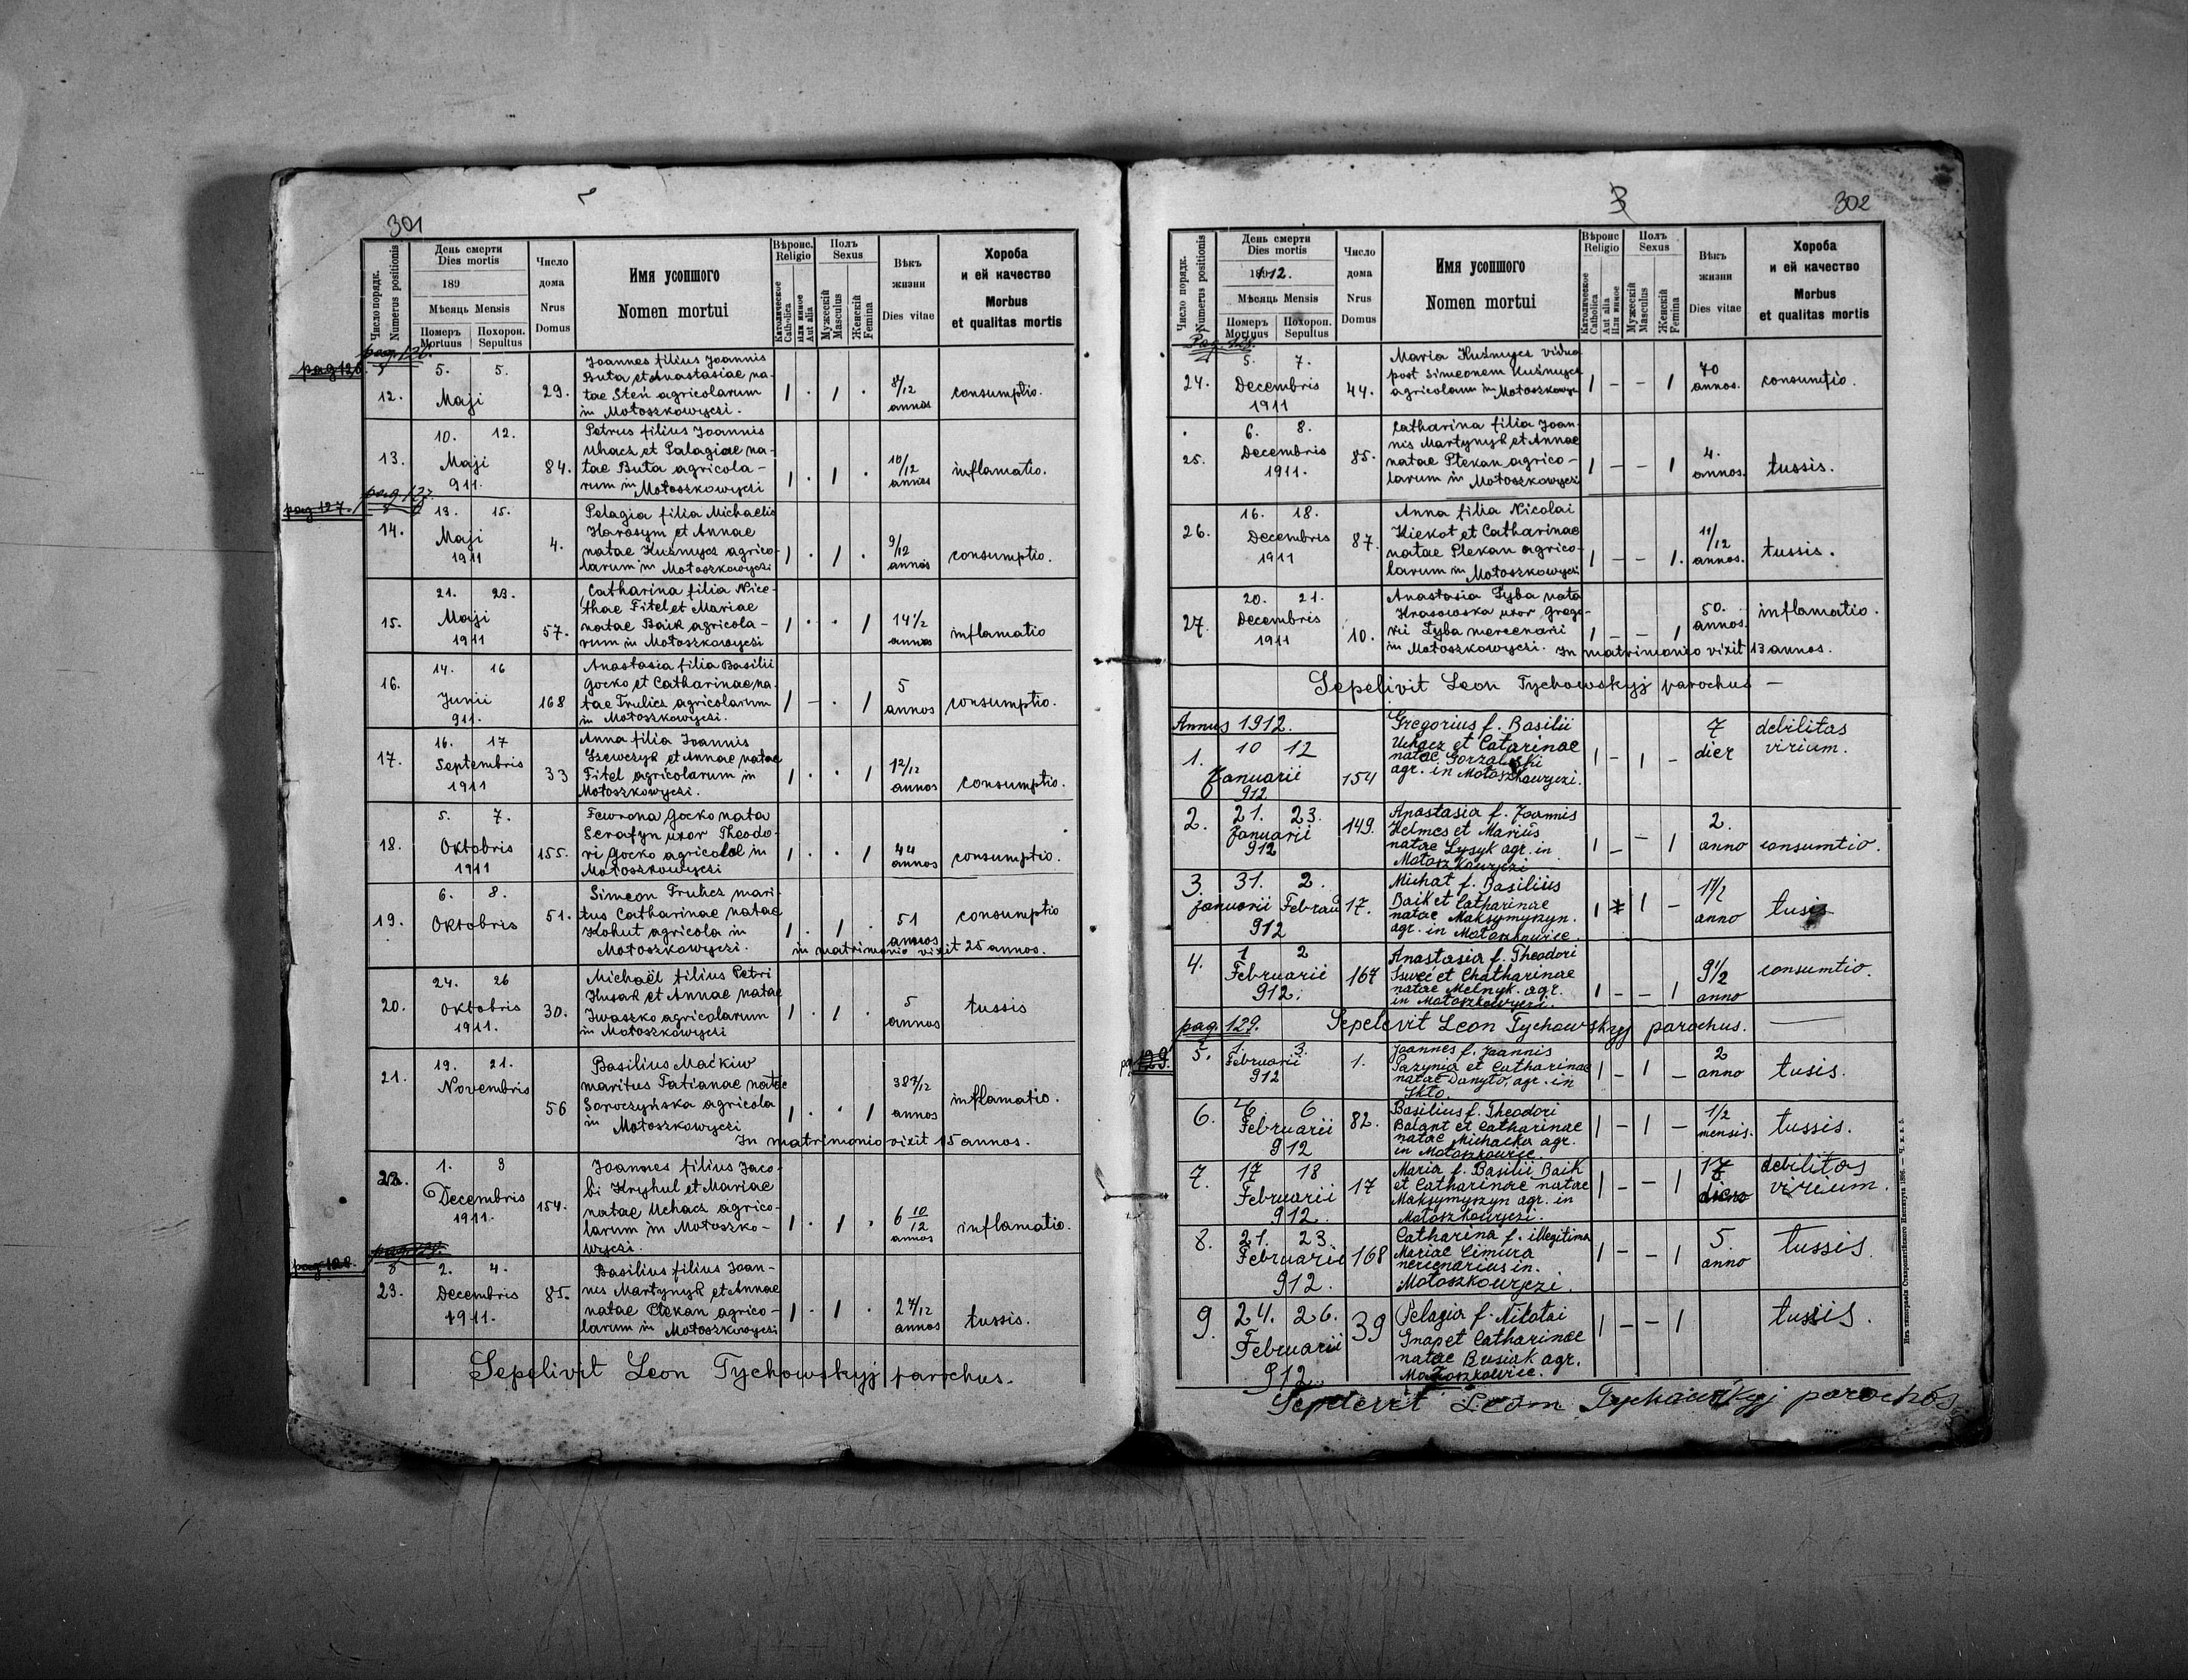 301
Число порядк.
Numerus positionis
День смерти
Dies mortis
189
Мѣсяць Mensis
Померъ Mortuus
Похорон. Sepultus
Число дома
Nrus Domus
Имя усопшого
Nomen mortui
Вѣроис. Religio
Католическое Catholica
Или инное Aut alia
Полъ Sexus
Мужескій Masculus
Женскій Femina
Вѣкъ жизни
Dies vitae
Хороба
и ей качество
Morbus
et qualitas mortis
pag. 126.
pag 126
12. 5. 5. Maji 29.
Joannes filius Joannis
Buta et Anastasiae na-
tae Steń agricolarum
in Mołoszkowyczi.
8/12 annos consumptio.
13. 10. 12. Maji 911. 84.
Petrus filius Joannis
Uhacz et Palagiae na-
tae Buta agricola-
rum in Mołoszkowyczi
10/12 annos inflamatio.
pag. 127.
pag 127.
14. 13. 15. Maji 1911 4.
Pelagia filia Michaelis
Harasym et Annae
natae Kuśmycz agrico-
larum in Mołoszkowyczi
9/12 annos consumptio.
15. 21. 23. Maji 1911 57.
Catharina filia Nice-
thae Fitel et Mariae
natae Baik agricola-
rum in Mołoszkowyczi
14 1/2 annos inflamatio
16. 14. 16 Junii 911. 168
Anastasia filia Basilii
Gocko et Catharinae na-
tae Frulicz agricolarum
in Mołoszkowyczi.
5 annos consumptio.
17. 16. 17 Septembris 1911 33
Anna filia Joannis
Szewczyk et Annae natae
Fitel agricolarum in
Mołoszkowyczi.
12/12 annos consumptio.
18. 5. 7. Oktobris 1911 155.
Fewrona Gocko nata
Serafyn uxor Theodo-
ri Gocko agricolae in
Mołoszkowyczi
44 annos consumptio.
19. 6. 8. Oktobris 51.
Simeon Frulicz mari-
tus Catharinae natae
Kohut agricola in
Mołoszkowyczi.
51 annos consumptio
in matrimonio vixit 25 annos.
20. 24. 26 Oktobris 1911. 30.
Michaël filius Petri
Husak et Annae natae
Iwaszko agricolarum
in Mołoszkowyczi
5 annos tussis
21. 19. 21. Novembris 56
Basilius Maćkiw
maritus Tatianae natae
Soroczyńska agricola
in Mołoszkowyczi
38 /12 annos inflamatio.
In matrimonio vixit 15 annos.
22. 1. 3 Decembris 1911. 154.
Joannes filius Jaco-
bi Hryhul et Mariae
natae Uchacz agrico-
larum in Mołoszko-
wyczi.
6 10/12 annos inflamatio.
pag 128.
23. 2. 4. Decembris 1911. 85.
Basilius filius Joan-
nis Martynyk et Annae
natae Plekan agrico-
larum in Mołoszkowyczi
2 /12 annos tussis.
Sepelivit Leon Tychowskyj parochus.
3
302
Число порядк.
Numerus positionis
День смерти
Dies mortis
1912.
Мѣсяць Mensis
Померъ Mortuus
Похорон. Sepultus
Число дома
Nrus Domus
Имя усопшого
Nomen mortui
Вѣроис Religio
Католическое Catholica
Aut alia Или инное
Полъ Sexus
Мужескій Masculus
Женскій Femina
Вѣкъ жизни
Dies vitae
Хороба
и ей качество
Morbus
et qualitas mortis
Pag. 128.
24. 5. 7. Decembris 1911 44.
Maria Kuśmycz vidua
post Simeonem Kuśmycz
agricolam in Mołoszkowycz
70 annos. consumtio.
25. 6. 8. Decembris 1911. 85.
Catharina filia Joan-
nis Martynyk et Annae
natae Plekan agrico-
larum in Mołoszkowyczi
4. annos. tussis.
26. 16. 18. Decembris 1911 87.
Anna filia Nicolai
Kiekot et Catharinae
natae Plekan agrico-
larum in Mołoszkowyczi
11/12 annos. tussis.
27. 20. 21. Decembris 1911 10.
Anastasia Łyba nata
Krasowska uxor Grego-
rii Łyba mercenarii
in Mołoszkowyczi.
50. annos. inflamatio.
In matrimonio vixit 13 annos.
Sepelivit Leon Tychowskyj parochus —
Annus 1912.
1. 10 12 Januarii 912 154
Gregorius f. Basilii
Uchacz et Catarinae
natae Gorzalski
agr. in Mołoszkowyczi.
7 dier debilitas virium.
2. 21. 23. Januarii 912 149.
Anastasia f. Joannis
Helmes et Mariis
natae Lysyk agr. in
Mołoszkowyczi
2. anno consumtio.
3. 31. 2. Januarii Februa 912 17.
Michat f. Basiliis
Baik et Catharinae
natae Maksymyszyn.
agr. in Mołoszkowice.
1 1/2 anno tusis
4. 1 2 Februarii 912. 167
Anastasia f. Theodori
Iwveć et Chatharinae
natae Melnyk. agr.
in Mołoszkowyczi.
9 1/2 anno consumtio.
pag. 129. Sepelevit Leon Tychowskyj parochus. —
129.
5. 1. 3. Februarii 912 1.
Joannes f. Joannis
Pazynia et Catharinae
natae Danyło, agr. in
Jkło.
2 anno tusis.
6. 6 Februarii 912 82.
Basilius f. Theodori
Bałant et Catharinae
natae Michacka agr.
in Mołoszkowice.
1/2 mensis. tussis.
7. 17 18 Februarii 912. 17
Maria f. Basilii Baik
et Catharinae natae
Maksymyszyn agr. in
Mołoszkowyczi.
17 debilitas virium.
8. 21. 23. Februarii 912. 168
Catharina f. illegitima
Mariae Cimura
nercenarius in.
Mołoszkowyczi.
5. anno tussis.
9. 24. 26. Februarii 912. 39
Pelagia f. Nikołai
Gnap et Catharinae
natae Busiak agr.
Mołoszkowice.
tussis.
Sepelevit Leom Tychowskyj parochós
Изъ типографіи Ставропигійского Института 1896.